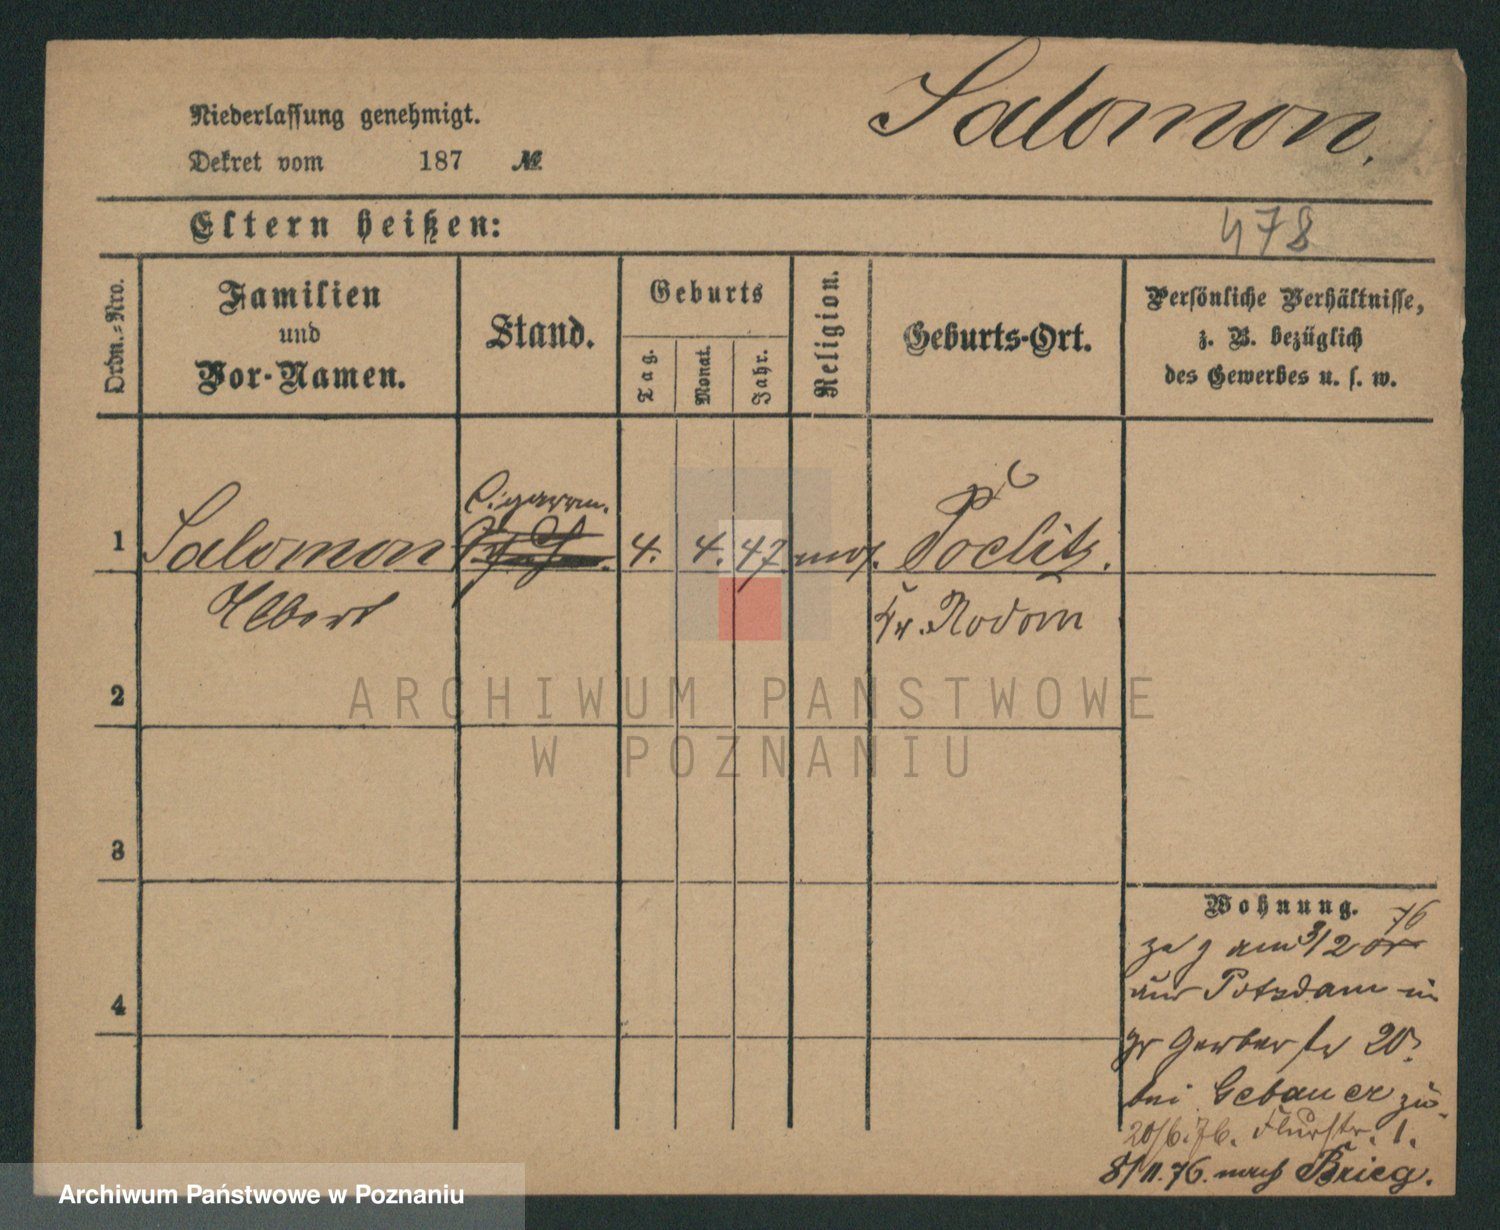 Salomon.
Niederlassung genehmigt.
Dekret vom 187 №
Eltern heißen:
478
Ordn.-Nro.
Familien
und
Vor-Namen.
Stand.
Geburts
Tag.
Monat.
Jahr.
Religion.
Geburts-Ort.
Persönliche Verhältnisse,
z. B. bezüglich
des Gewerbes u. s. w.
Cigarrm.
1 Salomon 4. 4. 47. mos.
Albert
2
3
4
ARCHIWUM PANSTWOWE
W POZNANIU
Wohnung.
76
zog am 3/2
aus Potsdam in
gr Gerber str 20
bei Gebauer zu.
20/6.76. Flurstr. 1.
8/11.76. nach Brieg.
Archiwum Państwowe w Poznaniu